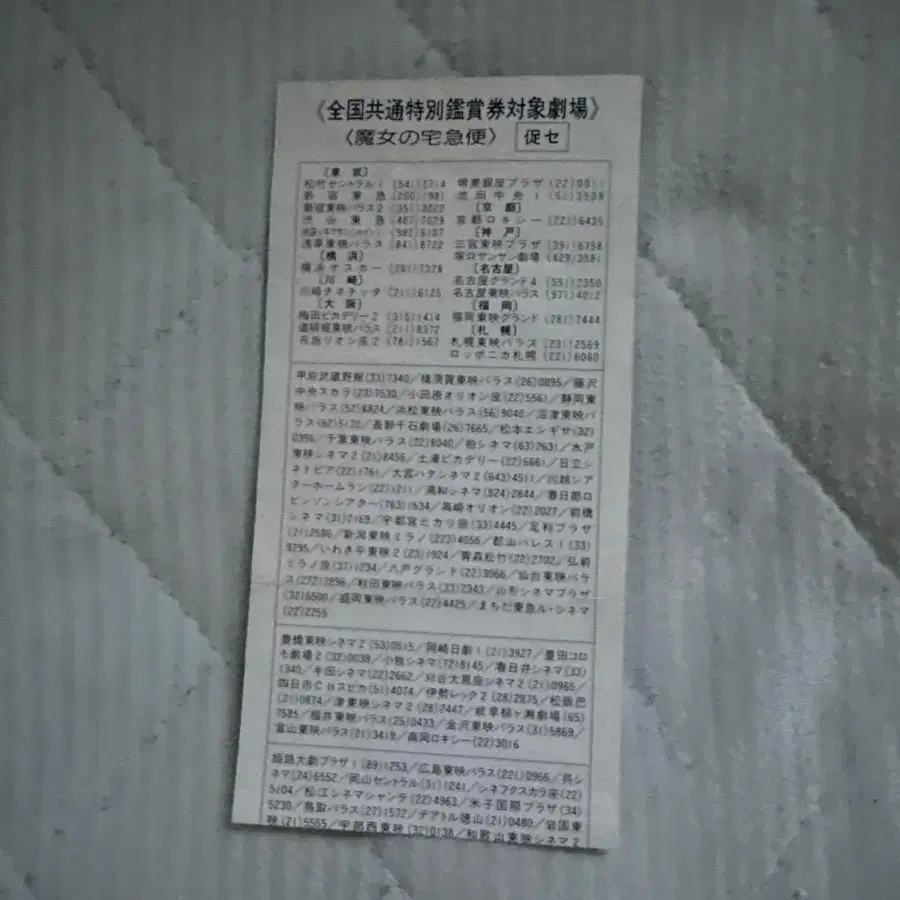 《全国共通特別鑑賞券対象劇場》
〈魔女の宅急便〉 促セ
〔東京〕
松竹セントラル1 (541)2714
新宿東急 (200)1981
新宿東映パラス2 (351)3022
渋谷東急 (407)7029
浅草東映パラス (841)8722
〔横浜〕
横浜オスカー (261)7378
〔川崎〕
川崎チネチッタ (211)6125
〔大阪〕
梅田ピカデリー2 (315)1414
道頓堀東映パラス (211)8372
布施リオン座2 (781)1567
堺東銀座プラザ (22)0011
池田中央1 (51)3509
〔京都〕
京都ロキシー (221)6435
〔神戸〕
三宮東映プラザ (391)6758
塚口サンサン劇場 (429)3581
〔名古屋〕
名古屋グランド4 (551)2350
名古屋東映パラス (971)4012
〔福岡〕
福岡東映グランド (281)7444
〔札幌〕
札幌東映パラス (231)2569
ロッポニカ札幌 (221)6080
甲府武蔵野館(33)7340/横須賀東映パラス(26)0895/藤沢
中央スカラ(23)7530/小田原オリオン座(22)5561/静岡東
映パラス(52)6824/浜松東映パラス(56)9040/沼津東映パ
ラス(62)5170/長野千石劇場(26)7665/松本エンギザ(32)
0396/千葉東映パラス(22)8040/柏シネマ(63)2631/水戸
東映シネマ2(21)8456/土浦ピカデリー(22)6661/日立シ
ネトピア(22)1761/大宮ハタシネマ2(643)4511/川越シア
ターホームラン(22)1211/浦和シネマ(824)2844/春日部ロ
ビンソンシアター(763)1634/高崎オリオン(22)2027/前橋
シネマ(31)2169/宇都宮ヒカリ座(33)4445/足利プラザ
(21)2586/新潟東映ミラノ(223)4056/郡山パレス1(33)
9295/いわき平東映2(23)1924/青森松竹(22)2702/弘前
ミラノ座(37)1234/八戸グランド(22)3066/仙台東映パラ
ス(272)2896/秋田東映パラス(33)2343/山形シネマプラザ
(32)6500/盛岡東映パラス(22)4425/まちだ東急ル・シネマ
(22)2255
豊橋東映シネマ2(53)0515/岡崎日劇1(21)3927/豊田コロ
モ劇場2(32)0038/小牧シネマ(72)8145/春日井シネマ(33)
1340/半田シネマ(22)2662/刈谷大黒座シネマ2(21)0965/
四日市CHスピカ(51)4074/伊勢レック2(28)2875/松阪巴
(21)0874/津東映シネマ2(28)2447/岐阜柳ヶ瀬劇場(65)
7585/福井東映パラス(25)0433/金沢東映パラス(31)5869/
富山東映パラス(21)3419/高岡ロキシー(22)3016
姫路大劇プラザ1(89)1253/広島東映パラス(221)0966/呉シ
ネマ(24)6552/岡山セントラル(31)1241/シネフクスカラ座(22)
5104/松江シネマシャンテ(22)4963/米子国際プラザ(34)
5230/鳥取パラス(27)1572/テアトル徳山(21)0480/岩国東
映(21)5555/宇部西東映(32)0138/和歌山東映シネマ2